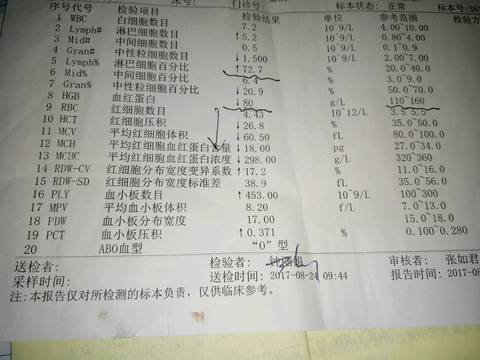 床号: 门诊号: 标本状态: 正常 标本号:38
序号代号 检验项目 检验结果 单位 参考范围 检验方
1 WBC 白细胞数目 7.2 10^9/L 4.00~10.00
2 Lymph# 淋巴细胞数目 ↑5.2 10^9/L 0.80~4.00
3 Mid# 中间细胞数目 0.5 10^9/L 0.1~0.9
4 Gran# 中性粒细胞数目 ↓1.500 10^9/L 2.00~7.00
5 Lymph% 淋巴细胞百分比 ↑72.7 % 20.0~40.0
6 Mid% 中间细胞百分比 6.4 % 3.0~9.0
7 Gran% 中性粒细胞百分比 ↓20.9 % 50.0~70.0
8 HGB 血红蛋白 ↓80 g/L 110~160
9 RBC 红细胞数目 4.43 10^12/L 3.5~5.5
10 HCT 红细胞压积 ↓26.8 % 35.0~50.0
11 MCV 平均红细胞体积 ↓60.50 fL 80.0~100.0
12 MCH 平均红细胞血红蛋白含量 ↓18.00 pg 27.0~34.0
13 MCHC 平均红细胞血红蛋白浓度 ↓298.00 g/L 320~360
14 RDW-CV 红细胞分布宽度变异系数 ↑17.2 % 11.0~16.0
15 RDW-SD 红细胞分布宽度标准差 38.9 fL 35.0~56.0
16 PLY 血小板数目 ↑453.00 10^9/L 100~300
17 MPV 平均血小板体积 8.20 f/L 7.0~13.0
18 PDW 血小板分布宽度 17.00 15.0~18.0
19 PCT 血小板压积 ↑0.371 % 0.100~0.280
20 ABO血型 “O”型
送检者: 检验者: 审核者: 张如君
采样时间: 送检时间: 2017-08-24 09:44 报告时间: 2017-08
注:本报告仅对所检测的标本负责, 仅供临床参考。